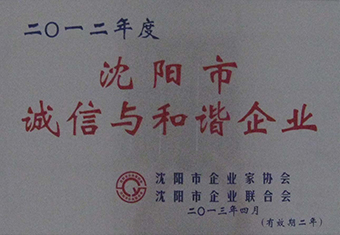 二〇一二年度
沈阳市
诚信与和谐企业
沈阳市企业家协会
沈阳市企业联合会
二〇一三年四月
(有效期二年)